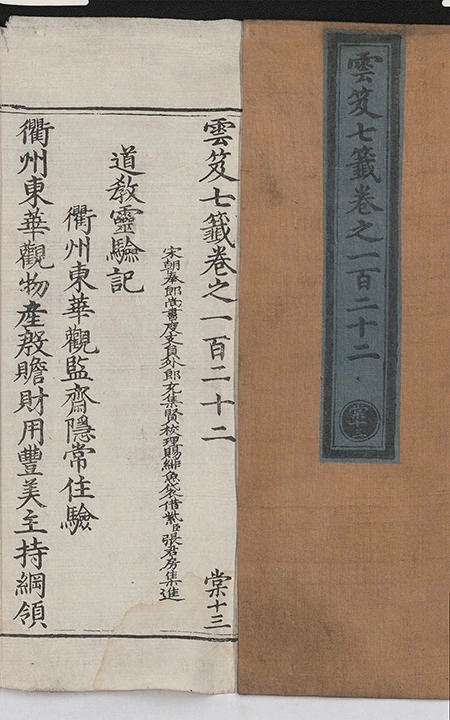 雲笈七籤卷之一百二十二
棠十三
雲笈七籤卷之一百二十二 棠十三
宋朝奉郎尚書度支員外郎充集賢校理賜緋魚袋借紫臣張君房集進
道教靈驗記
衢州東華觀監齋隱常住驗
衢州東華觀物產殷贍財用豐美主持綱領